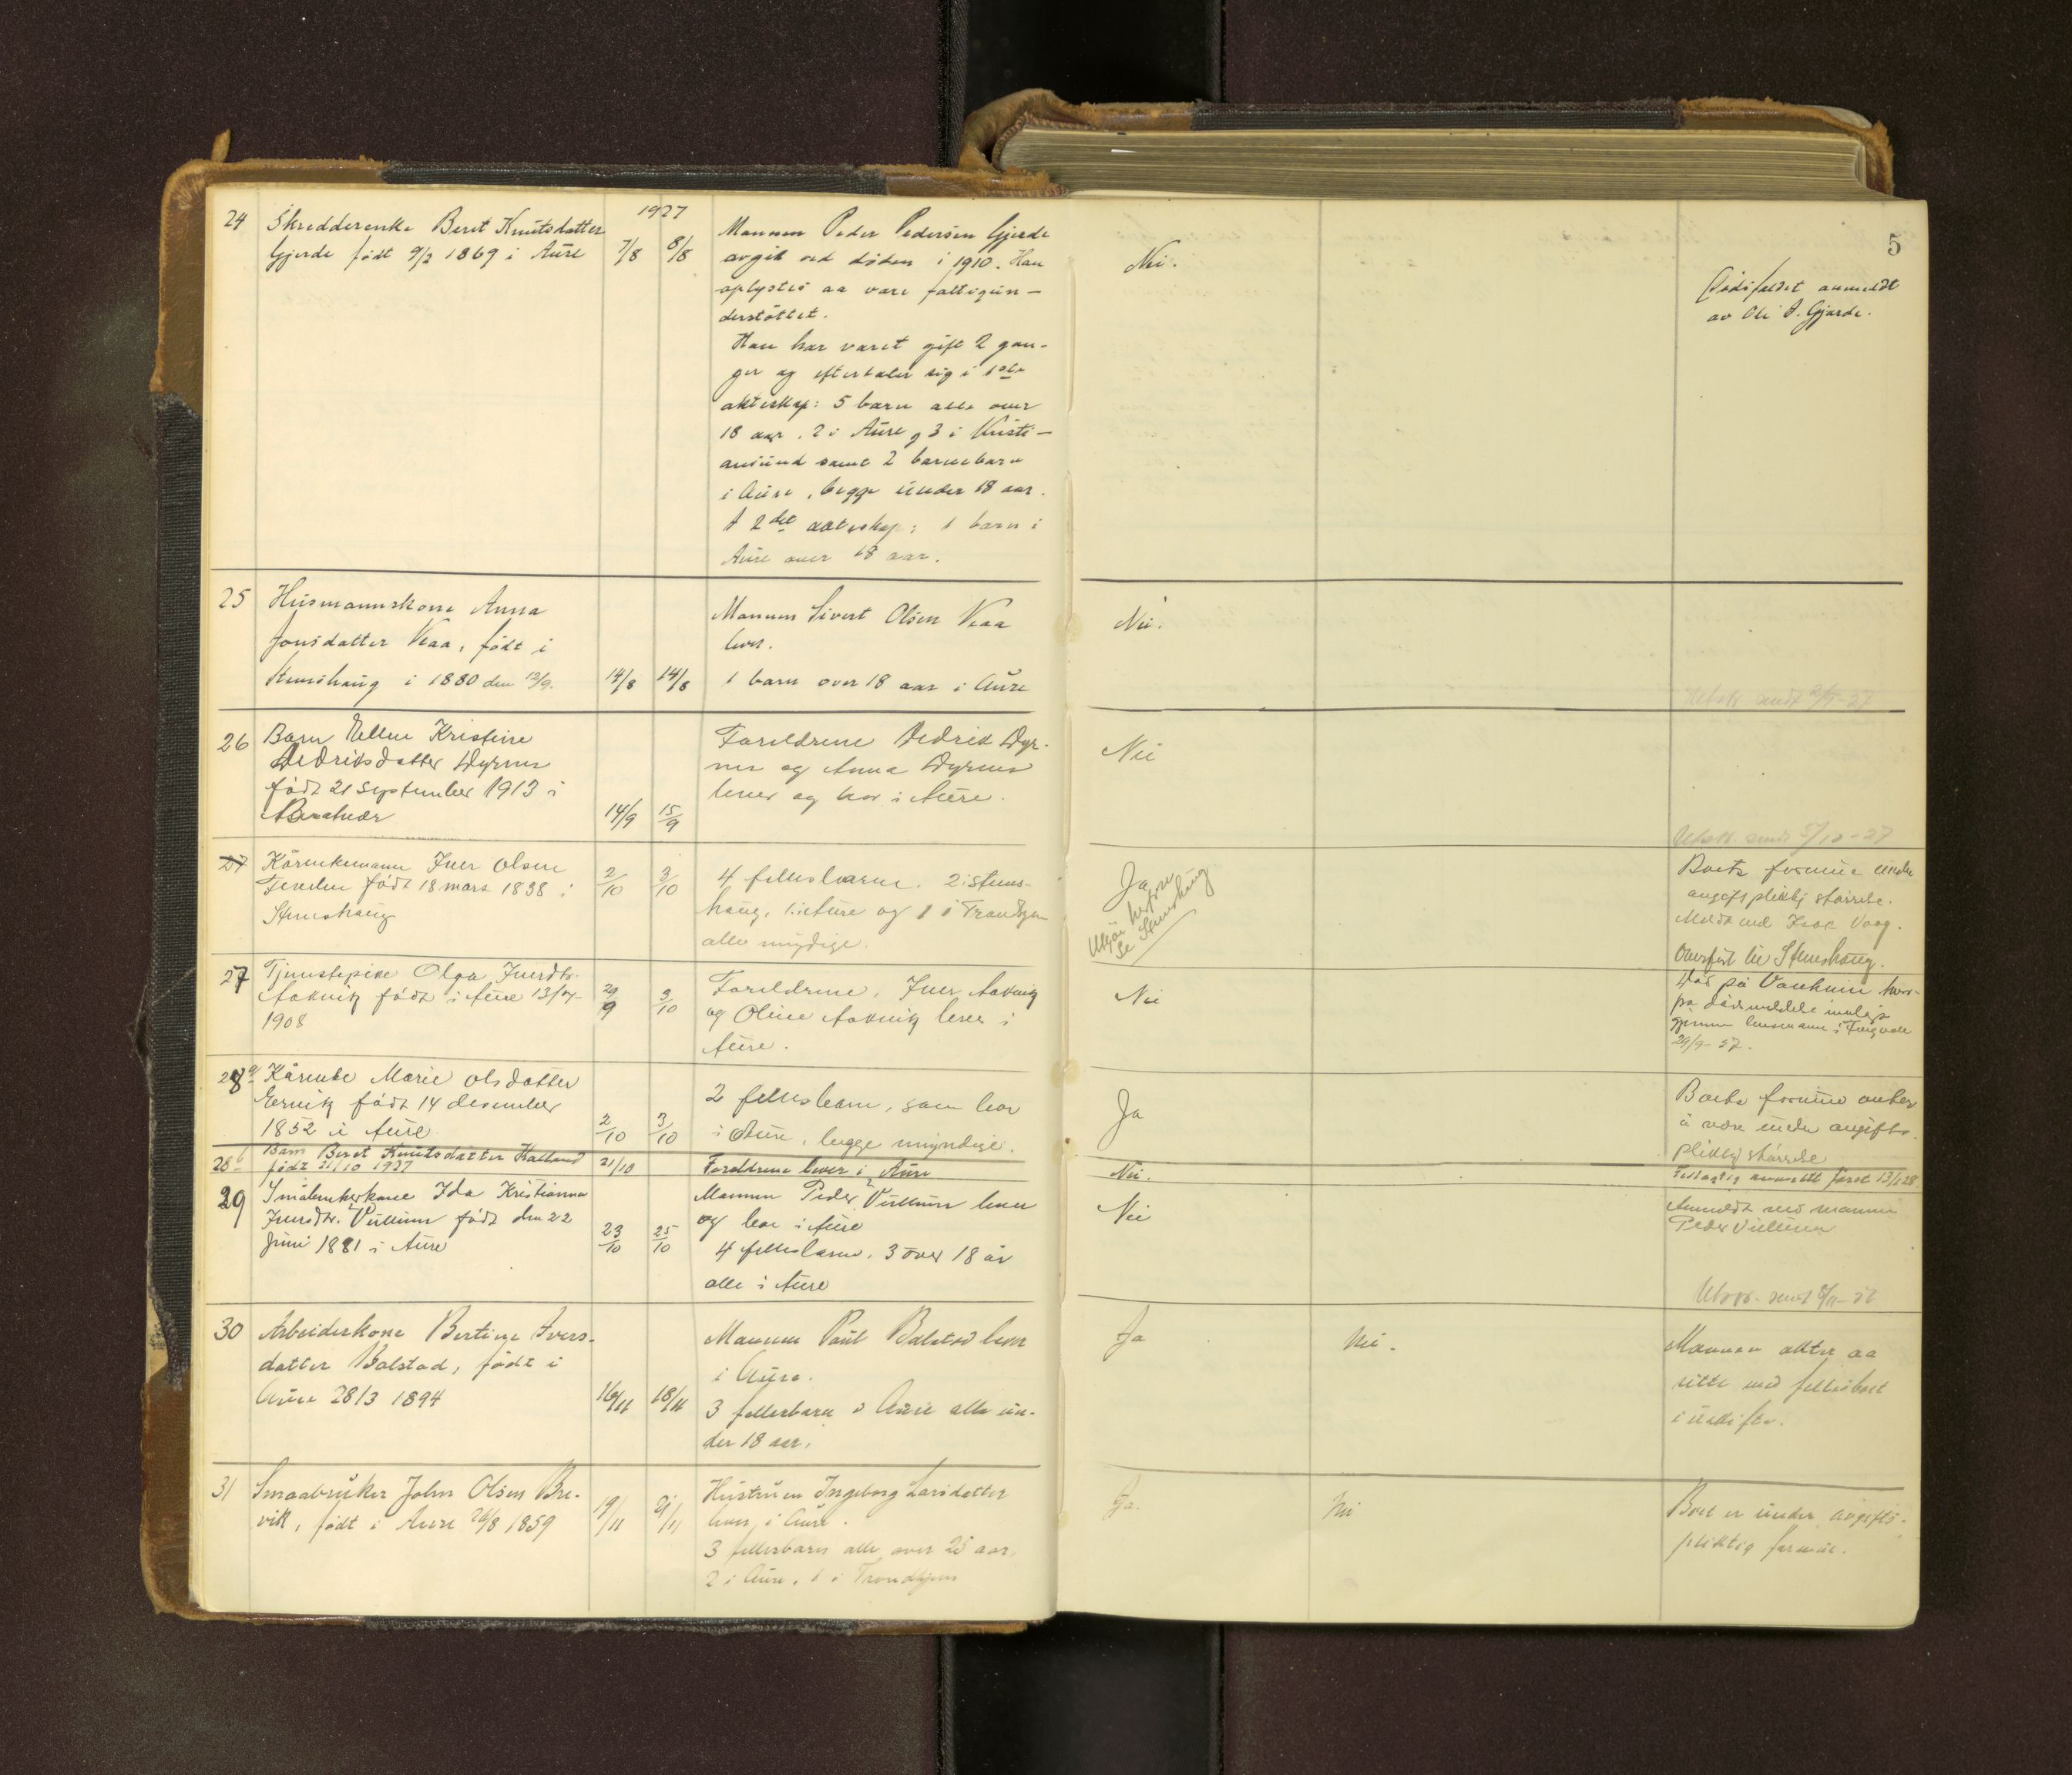 1927
5
24 Skredderenke Beret Knutsdatter
Gjerde født 9/2 1869 i Aure
7/8 8/8
Mannen Peder Pedersen Gjerde
avgik ved døden i 1910. Han
oplystes aa være fattigun-
derstøttet.
Han har været gift 2 gan-
ger og efterlater sig i 1ste
ekteskap: 5 barn alle over
18 aar. 2 i Aure og 3 i Kristi-
ansund samt 2 barnebarn
i Aure, begge under 18 aar.
I 2det ekteskap: 1 barn i
Aure over 18 aar.
Nei.
Dødsfaldet anmeldt
av Ole P. Gjerde.
25 Husmannskone Anna
Jonsdatter Vaa, født i
Stemshaug i 1880 den 12/9.
14/8 14/8
Mannen Sivert Olsen Vaa
lever.
1 barn over 18 aar i Aure
Nei.
26 Barn Ellen Kristine
Dedriksdatter Dyrnes
født 21 September 1913 i
14/9 15/9
Foreldrene Dedrik Dyr-
nes og Anna Dyrnes
lever og bor i Aure.
Nei
Utskr. sendt 5/10-27
27 Kårenkemann Iver Olsen
født 18 mars 1838 i
Stemshaug
2/10 3/10
4 fellesbarn. 2 i Stems-
haug, 1 i Aure og 1 i Trondhjem
alle myndige.
Ja
Utgår herfra
Se Stemshaug
Boets formue under
avgiftspliktig størrelse.
Meldt ved Isak Vaag.
Overført til Stemshaug.
27 Tjenestepike Olga Iversdtr.
Aakvik født i Aure 13/
1908
29/9 3/10
Foreldrene, Iver Aakvik
og Oline Aakvik lever i
Aure.
Nei
Død på
pr dødsmeldele
gjennem lensmannen i Tingvoll
29/9-27.
28a Kårenke Marie Olsdatter
Ervik født 14 desember
1852 i Aure
2/10 3/10
2 fellesbarn, som bor
i Aure, begge myndige.
Ja
Boets formue antas
å være under avgifts-
pliktig størrelse
28b Barn Beret Knutsdatter
født 21/10 1927
21/10
Foreldrene lever i Aure
Nei.
anmeldt først 13/1 28
29 Småbrukerkone Ida Kristianna
Iversdtr. Vullum født den 22
Juni 1881 i Aure
23/10 25/10
Mannen Peder Vullum lever
og bor i Aure
4 fellesbarn, 3 over 18 år
alle i Aure
Nei
Anmeldt ved mannen
Peder Vullum
Utskr. sendt
30 Arbeiderkone Bertine Ivers-
datter Bolstad, født i
Aure 28/3 1894
16/11 18/11
Mannen Paul Bolstad lever
i Aure.
3 fellesbarn i Aure alle un-
der 18 aar.
Ja
Nei.
Mannen akter aa
sitte med fellesboet
i uskifte.
31 Smaabruker John Olsen Bre-
vik, født i Aure 26/8 1859
19/11 21/11
Hustruen Ingeborg Larsdatter
lever i Aure.
3 fellesbarn alle over 25 aar,
2 i Aure, 1 i Trondhjem
Ja.
Nei
Boet er under avgifts-
pliktig formue.